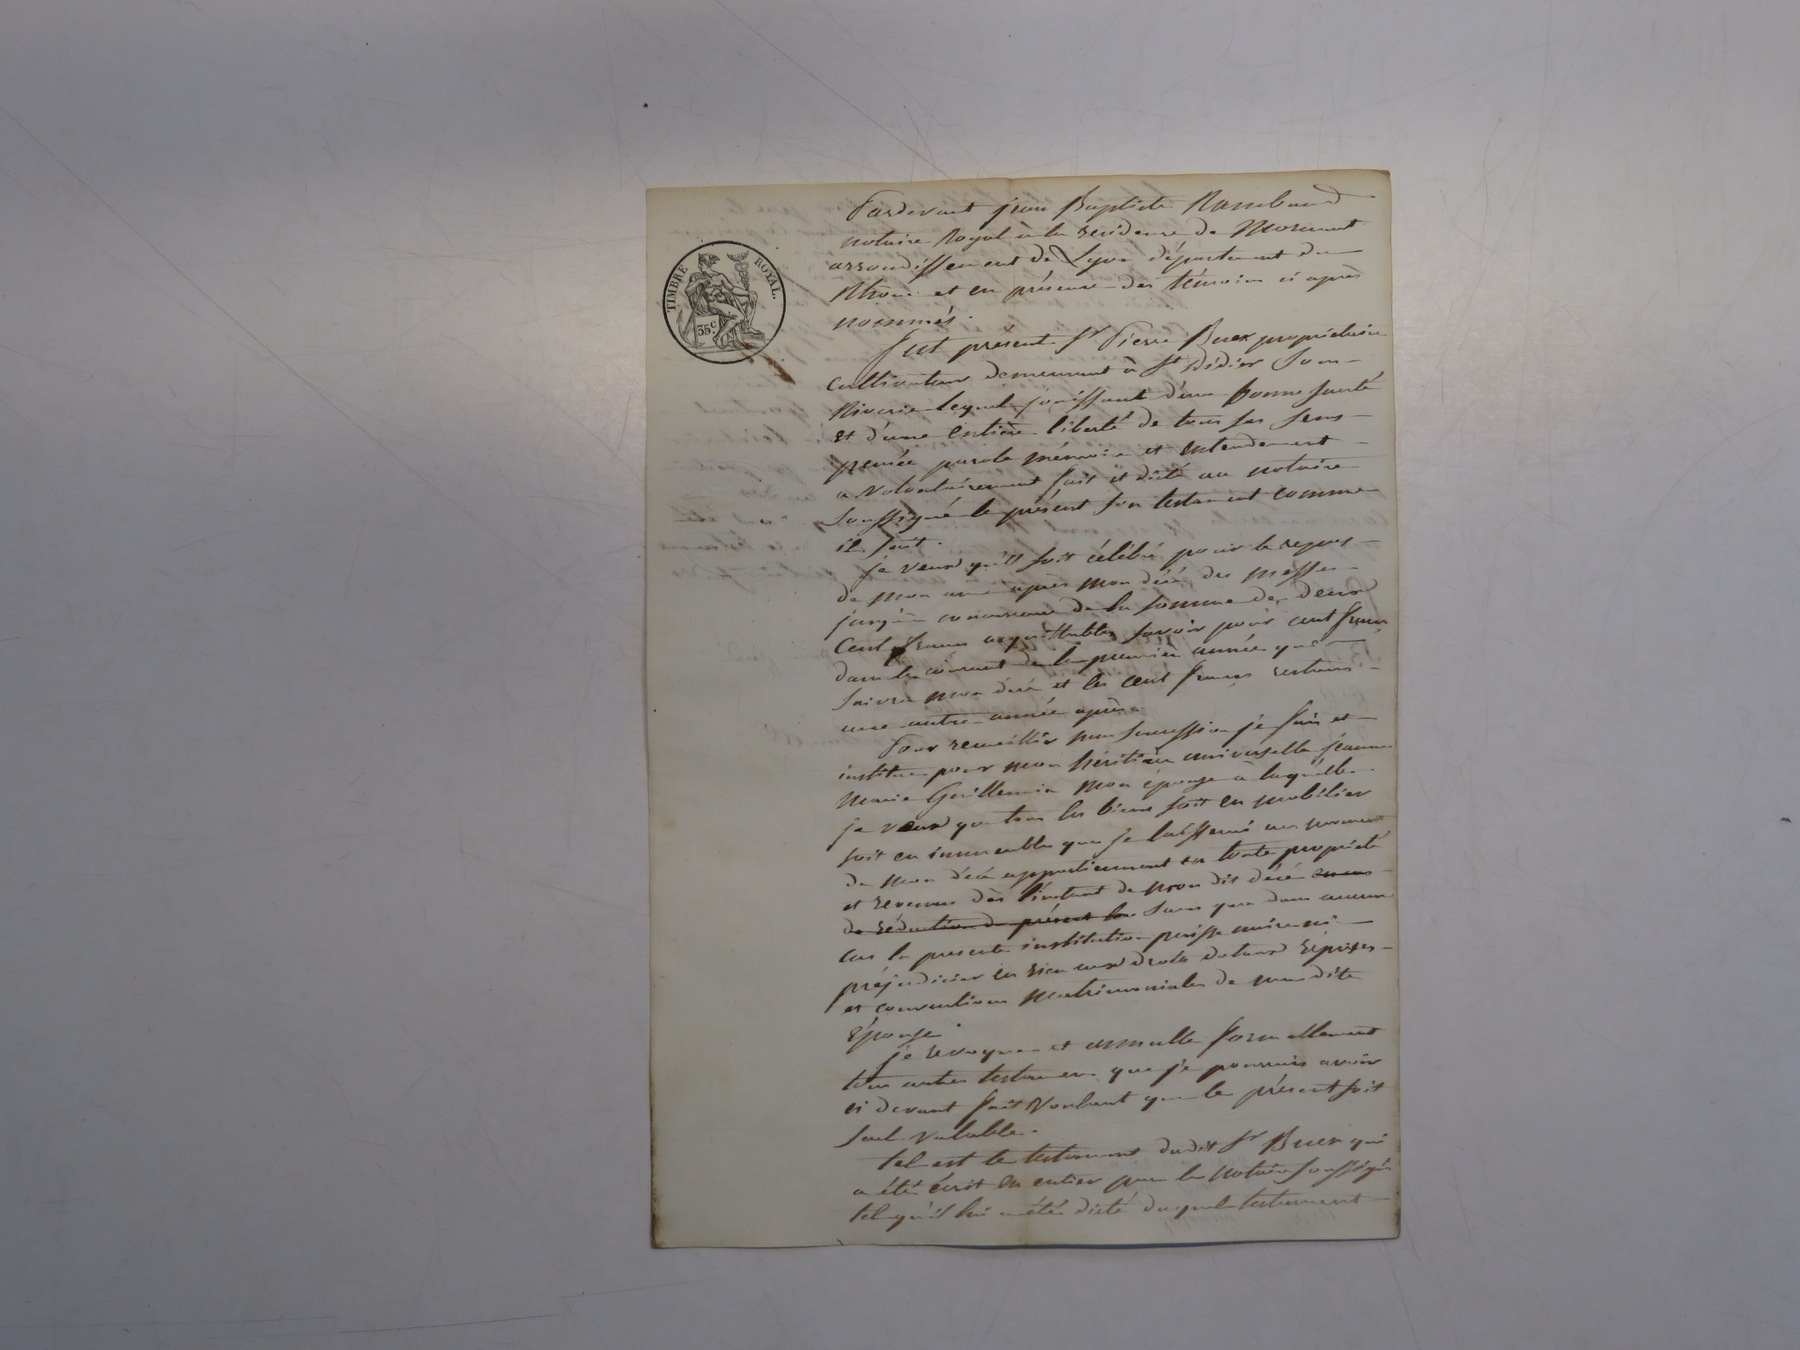 TIMBRE ROYAL.
35c
Pardevant jean Baptiste Rambaud
notaire Royal à la residence de Mornant
arrondissement de Lyon département du
Rhône et en présence des témoins ci après
nommés.
fut présent Sr Pierre Buer propriétaire
cultivateur demeurant à St Didier Sous
Riverie lequel jouissant d'une bonne santé
et d'une entière liberté de tous ses sens
pensée parole mémoire et entendement
a volontairement fait et dicté au notaire
soussigné le présent son testament comme
il suit.
je veux qu'il soit célébré pour le repos
de mon ame après mon décé des messes
jusqu'à concurrence de la somme de deux
cent francs acquittables savoir pour cent francs
dans le courant de la premiere année qui
suivra mon décé et les cent francs restans
une autre année après.
Pour recueillir ma succession je fais et
institue pour mon héritière universelle jeanne
Marie Guillermin mon épouse à laquelle
je veux que tous les biens soit en mobilier
soit en immeubles que je laisserai au moment
de mon décé appartiennent en toute propriété
et revenus dès l'instant de mon dit décé
de réduction du présent sans que dans aucun
cas la presente institution puisse nuire ni
préjudicier en rien aux droits dotaux reprises
et conventions matrimoniales de ma dite
épouse.
je revoque et annulle formellement
tous autres testamens que je pourrais avoir
ci devant fait voulant que le présent soit
seul valable.
tel est le testament dudit Sr Buer qui
a été écrit en entier par le notaire soussigné
tel qu'il lui a été dicté duquel testament